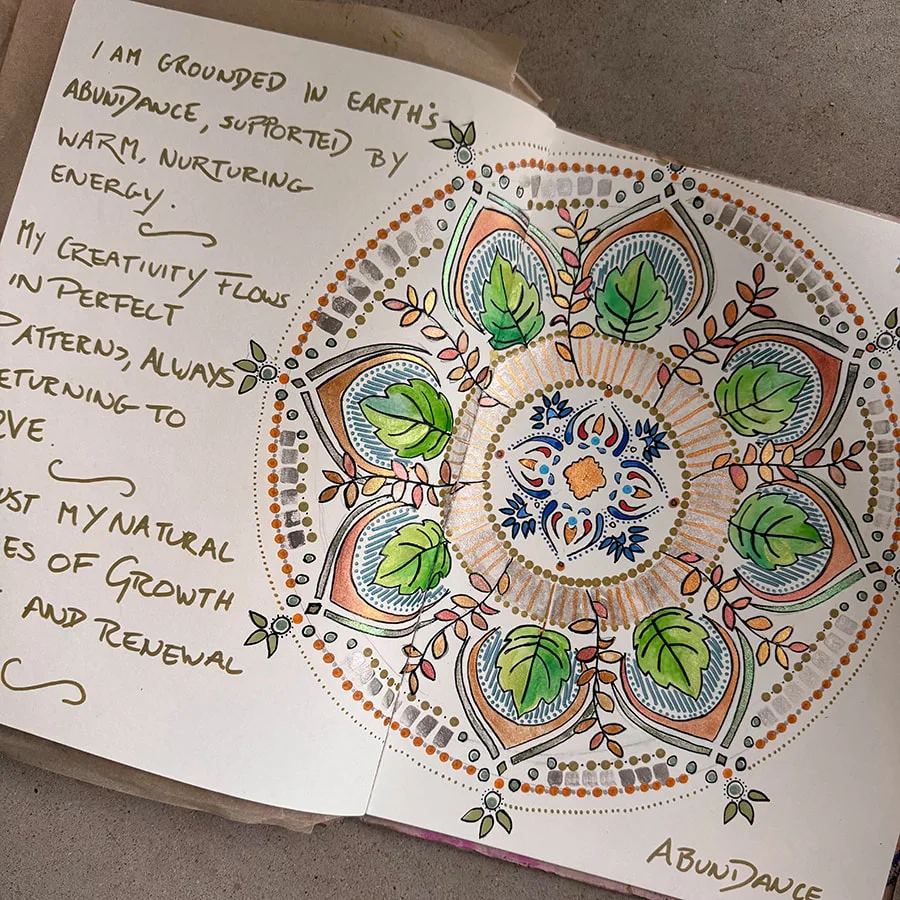 I AM GROUNDED IN EARTH's
ABUNDANCE, SUPPORTED BY
WARM, NURTURING
ENERGY.
MY CREATIVITY FLOWS
IN PERFECT
PATTERNS, ALWAYS
ETURNING TO
OVE.
UST MY NATURAL
ES OF GROWTH
AND RENEWAL
ABUNDANCE